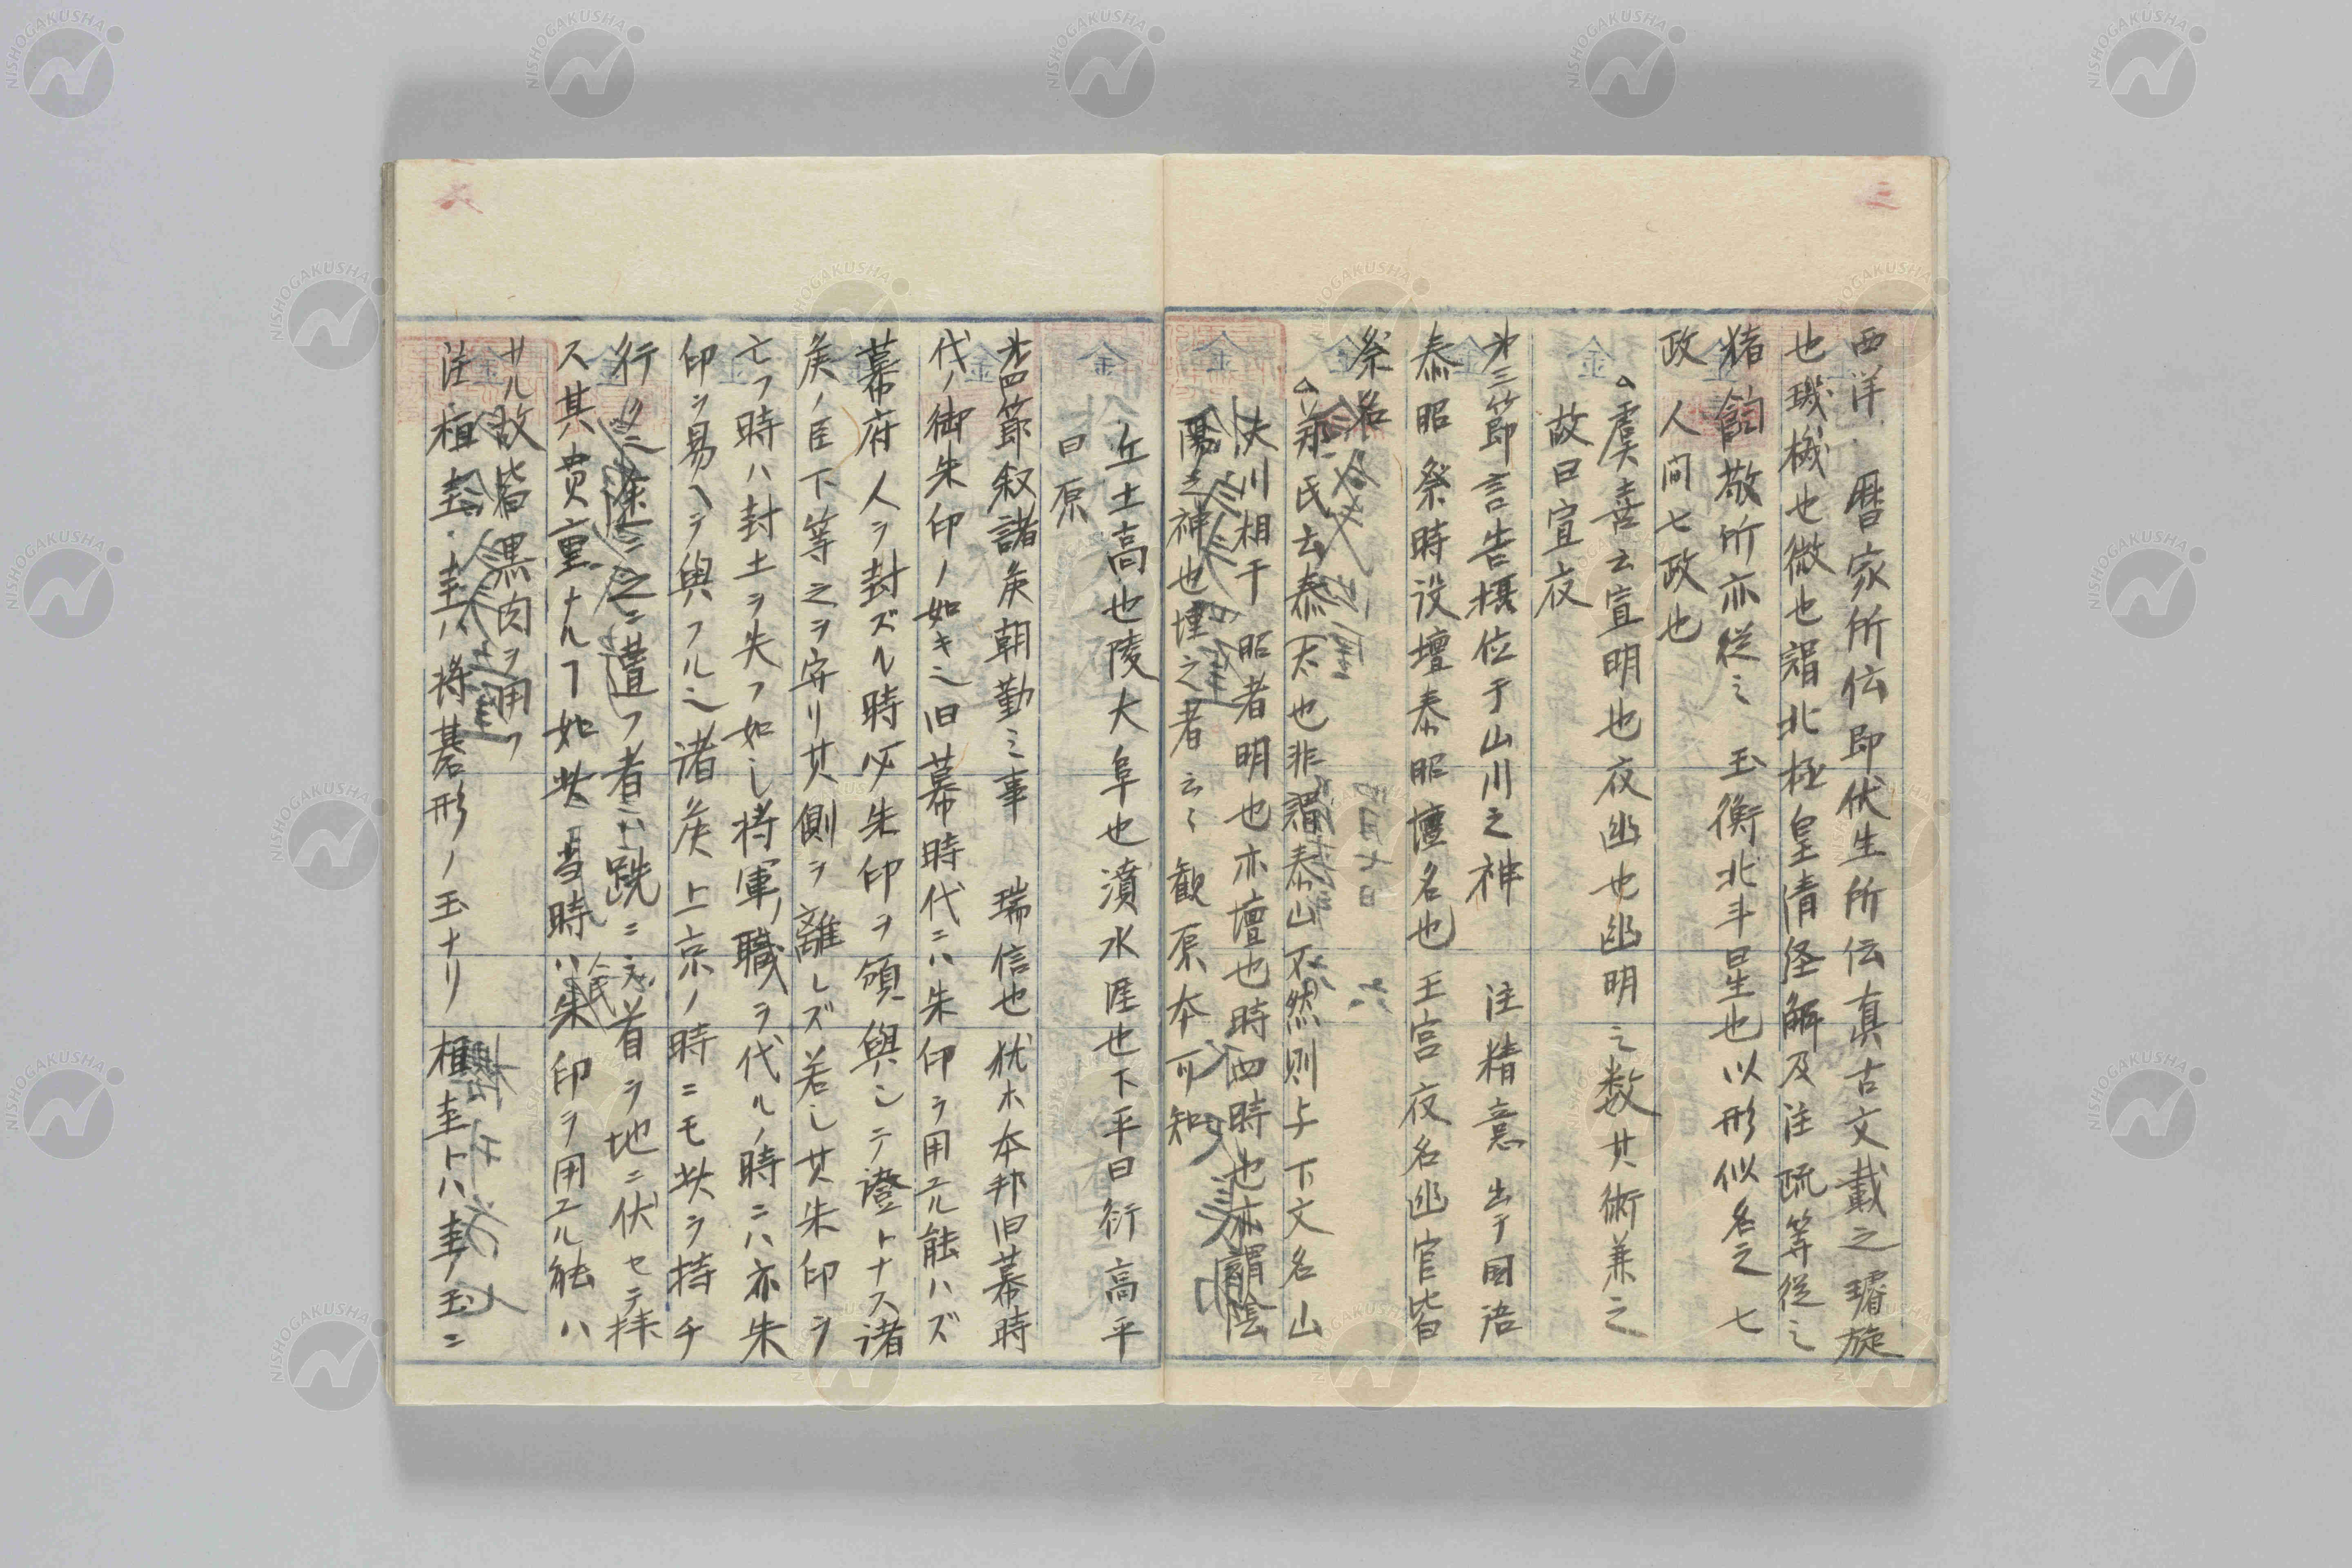 三
西洋．暦家所伝即伏生所伝真古文載之璿旋
也璣機也微也謂北極皇清経解及注疏等従之
猪飼敬所亦従之　玉衡北斗星也以形似名之　七
政　人間七政也
虞喜云宣明也夜幽也幽明之数其術兼之
故曰宣夜
㐧三節言告摂位于山川之神　注精意出于国语
泰昭祭時设壇泰昭壇名也王宮夜名幽官皆
祭名
蔡氏云泰太也非謂泰山不然則与下文名山
大川相干　昭者明也亦壇也時四時也亦謂陰
陽之神也壇之者云々　観原本可知
丘土高也陵大阜也濆水涯也下平曰衍高平
曰原
㐧四節叙諸矦朝勤之事　瑞信也犹ホ本邦旧幕時
代ノ御朱印ノ如キ之旧幕時代ニハ朱印ヲ用エル能ハズ
幕府人ヲ封ズル時必朱印ヲ頒與シテ證トナス諸
矦ノ臣下等之ヲ守リ其側ヲ離レズ若し其朱印ヲ
亡フ時ハ封土ヲ失フ如し将軍ノ職ヲ代ルノ時ニハ亦朱
印ヲ易ヘテ與フル之諸矦上京ノ時ニモ此ヲ持チ
行クニ途ニ之ニ遭フ者ハ跣ニ首ヲ地ニ伏セテ拝
ス其贵重ナルヿ如此　当時ハ人民朱印ヲ用エル能ハ
サル故皆黒肉ヲ用フ
注．桓圭．圭ハ将棊形ノ玉ナリ　桓圭トハ圭ノ玉ニ